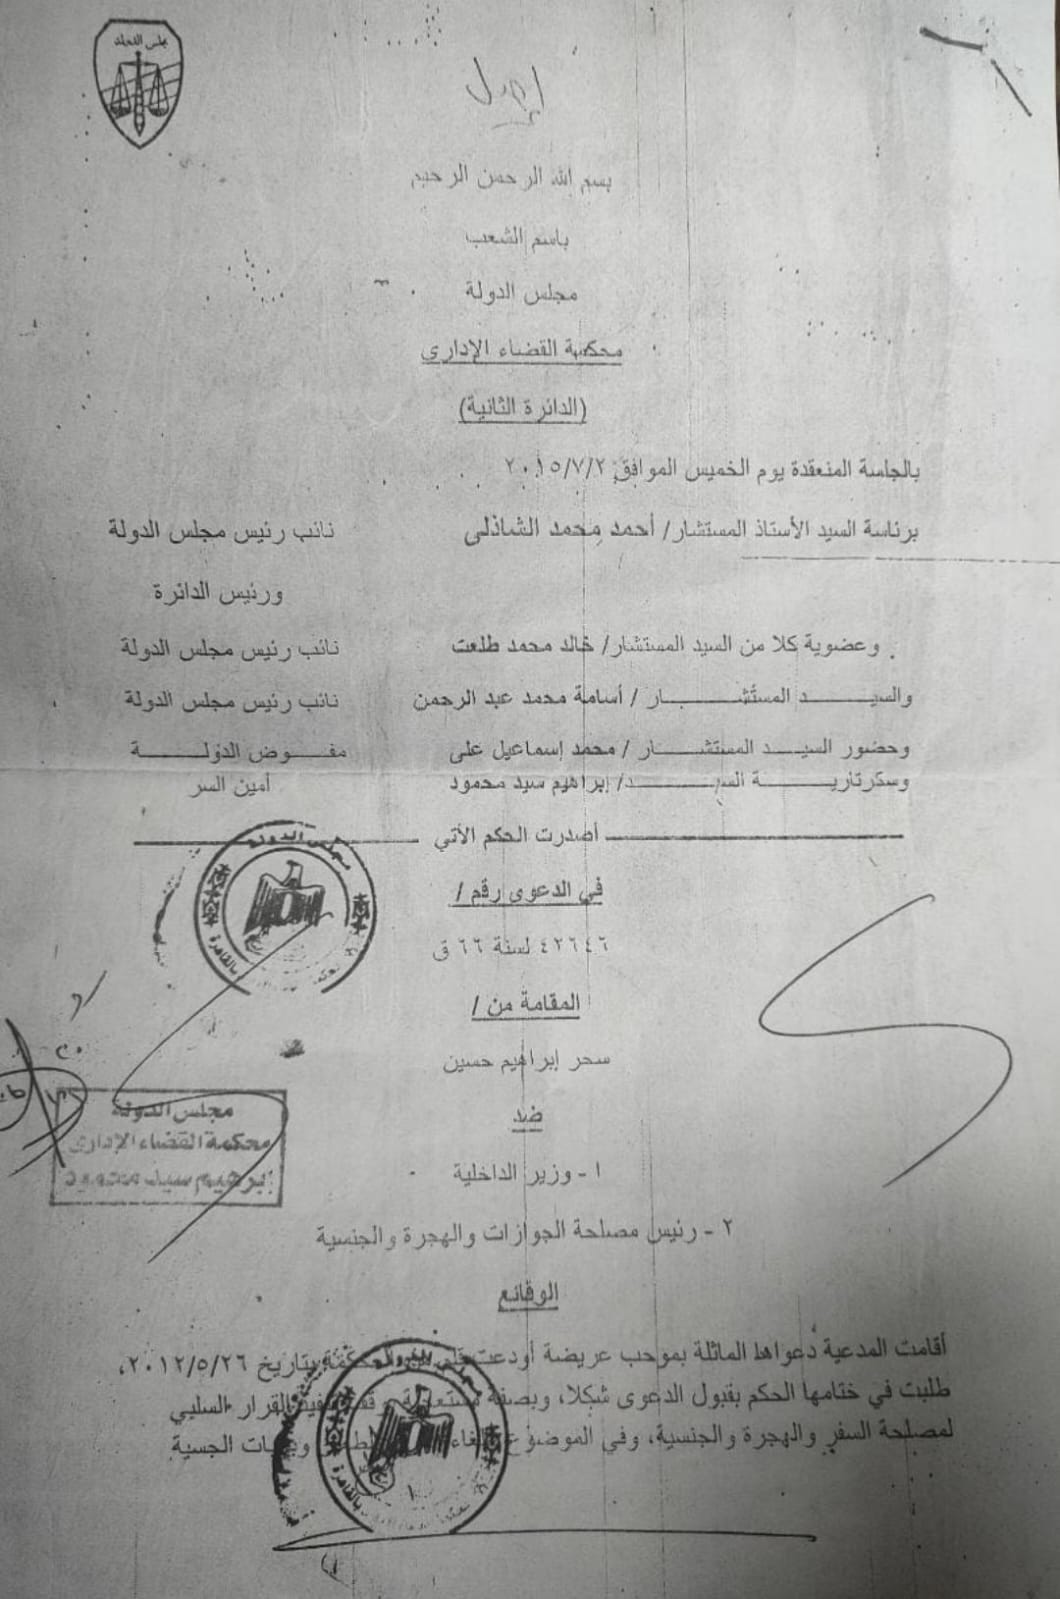 مجلس الدولة
بسم الله الرحمن الرحيم
باسم الشعب
مجلس الدولة
محكمة القضاء الإداري
(الدائرة الثانية)
بالجلسة المنعقدة يوم الخميس الموافق ٢٠١٥/٧/٢
برئاسة السيد الأستاذ المستشار/ أحمد محمد الشاذلى نائب رئيس مجلس الدولة
ورئيس الدائرة
وعضوية كلا من السيد المستشار/ خالد محمد طلعت نائب رئيس مجلس الدولة
والسيـــد المستشـــار / أسامة محمد عبد الرحمن نائب رئيس مجلس الدولة
وحضور السيـــد المستشـــار / محمد إسماعيل على مفـــوض الدولـــة
وسكرتاريـــة السيـــد/ إبراهيم سيد محمود أمين السر
أصدرت الحكم الأتي
في الدعوى رقم /
٤٢٦٤٦ لسنة ٦٦ ق
المقامة من /
سحر إبراهيم حسين
ضد
١ - وزير الداخلية
٢ - رئيس مصلحة الجوازات والهجرة والجنسية
مجلس الدولة
بالقاهرة
مجلس الدولة
محكمة القضاء الإدارى
إبراهيم سيد محمود
الوقائع
أقامت المدعية دعواها الماثلة بموجب عريضة أودعت المحكمة بتاريخ ٢٠١٢/٥/٢٦،
طلبت في ختامها الحكم بقبول الدعوى شكلا، وبصفة مستعجلة القرار السلبي
لمصلحة السفر والهجرة والجنسية، وفي الموضوع الجسية
بالقاهرة